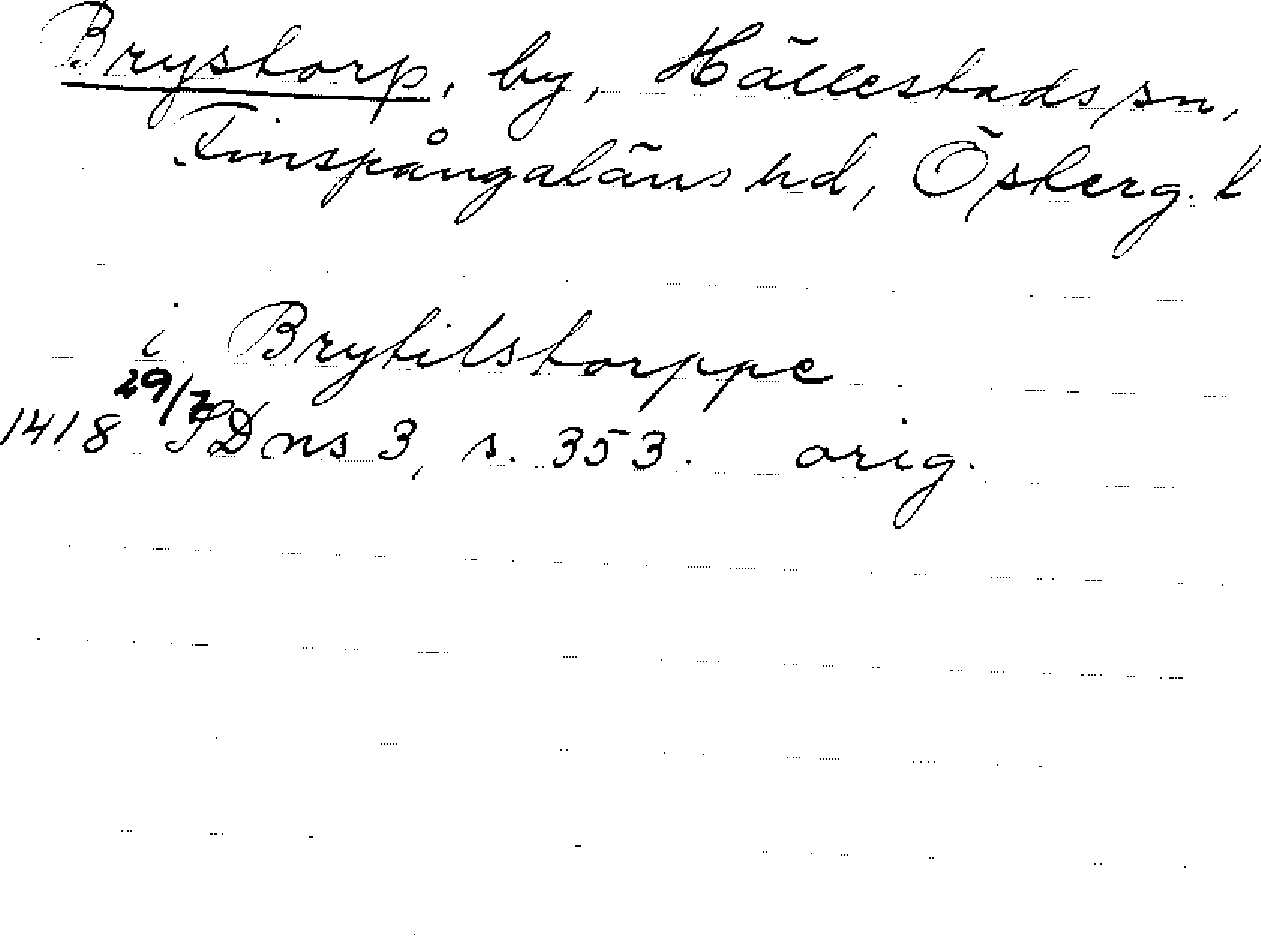 Brystorp, by, Hällestads sn,
Finspångaläns hd, Österg. l
i Brytilstorppe
1418 29/7 SD ns 3, s. 353. orig.